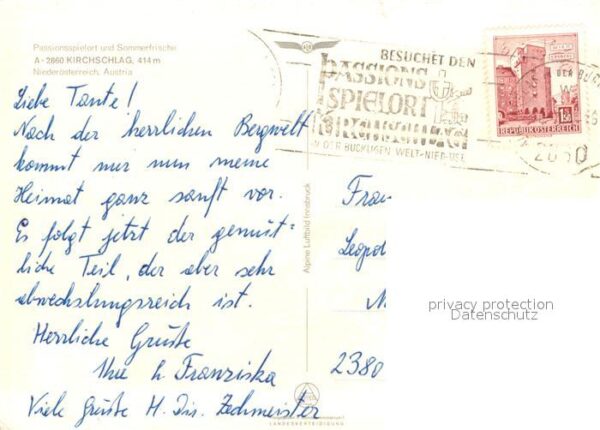 Passionsspielort und Sommerfrische
A - 2860 KIRCHSCHLAG, 414 m
Niederösterreich, Austria
Liebe Tante!
Nach der herrlichen Bergwelt
kommt mir nun meine
Heimat ganz sanft vor.
Es folgt jetzt der gemüt=
liche Teil, der aber sehr
abwechslungsreich ist.
Herrliche Grüße
Ihre h. Franziska
Viele Grüße H. Dir. Zechmeister
Alpine Luftbild Innsbruck
LANDESVERTEIDIGUNG
BESUCHET DEN
PASSIONS
SPIELORT
KIRCHSCHLAG
IN DER BUCKLIGEN WELT-NIED.ÖST.
DER BUC
2860
1.50
REPUBLIK ÖSTERREICH
Frau
Leopol
2380
privacy protection
Datenschutz